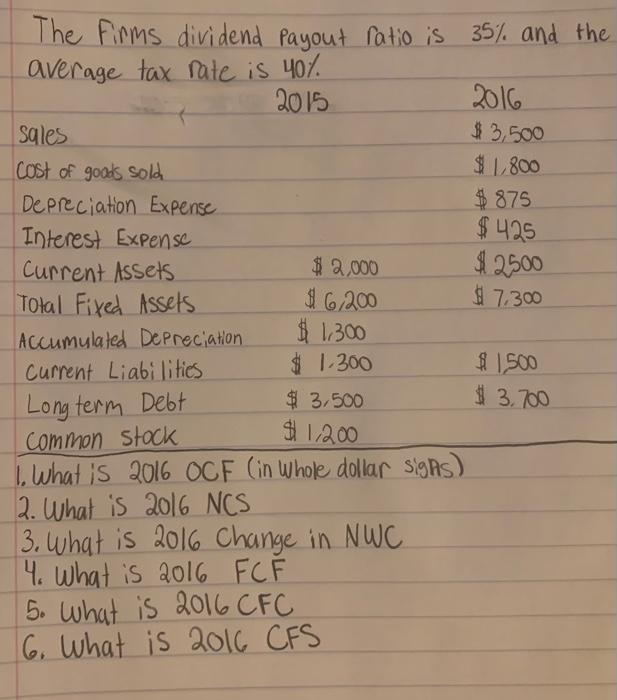 The Firms dividend Payout ratio is 35% and the
average tax rate is 40%
2015 2016
Sales $ 3,500
Cost of goods sold $ 1,800
Depreciation Expense $ 875
Interest Expense $ 425
Current Assets $ 2,000 $ 2500
Total Fixed Assets $ 6,200 $ 7,300
Accumulated Depreciation $ 1,300
Current Liabilities $ 1.300 $ 1,500
Long term Debt $ 3.500 $ 3.700
Common stock $ 1,200
1. What is 2016 OCF (in whole dollar signs)
2. What is 2016 NCS
3. What is 2016 Change in NWC
4. What is 2016 FCF
5. What is 2016 CFC
6. What is 2016 CFS